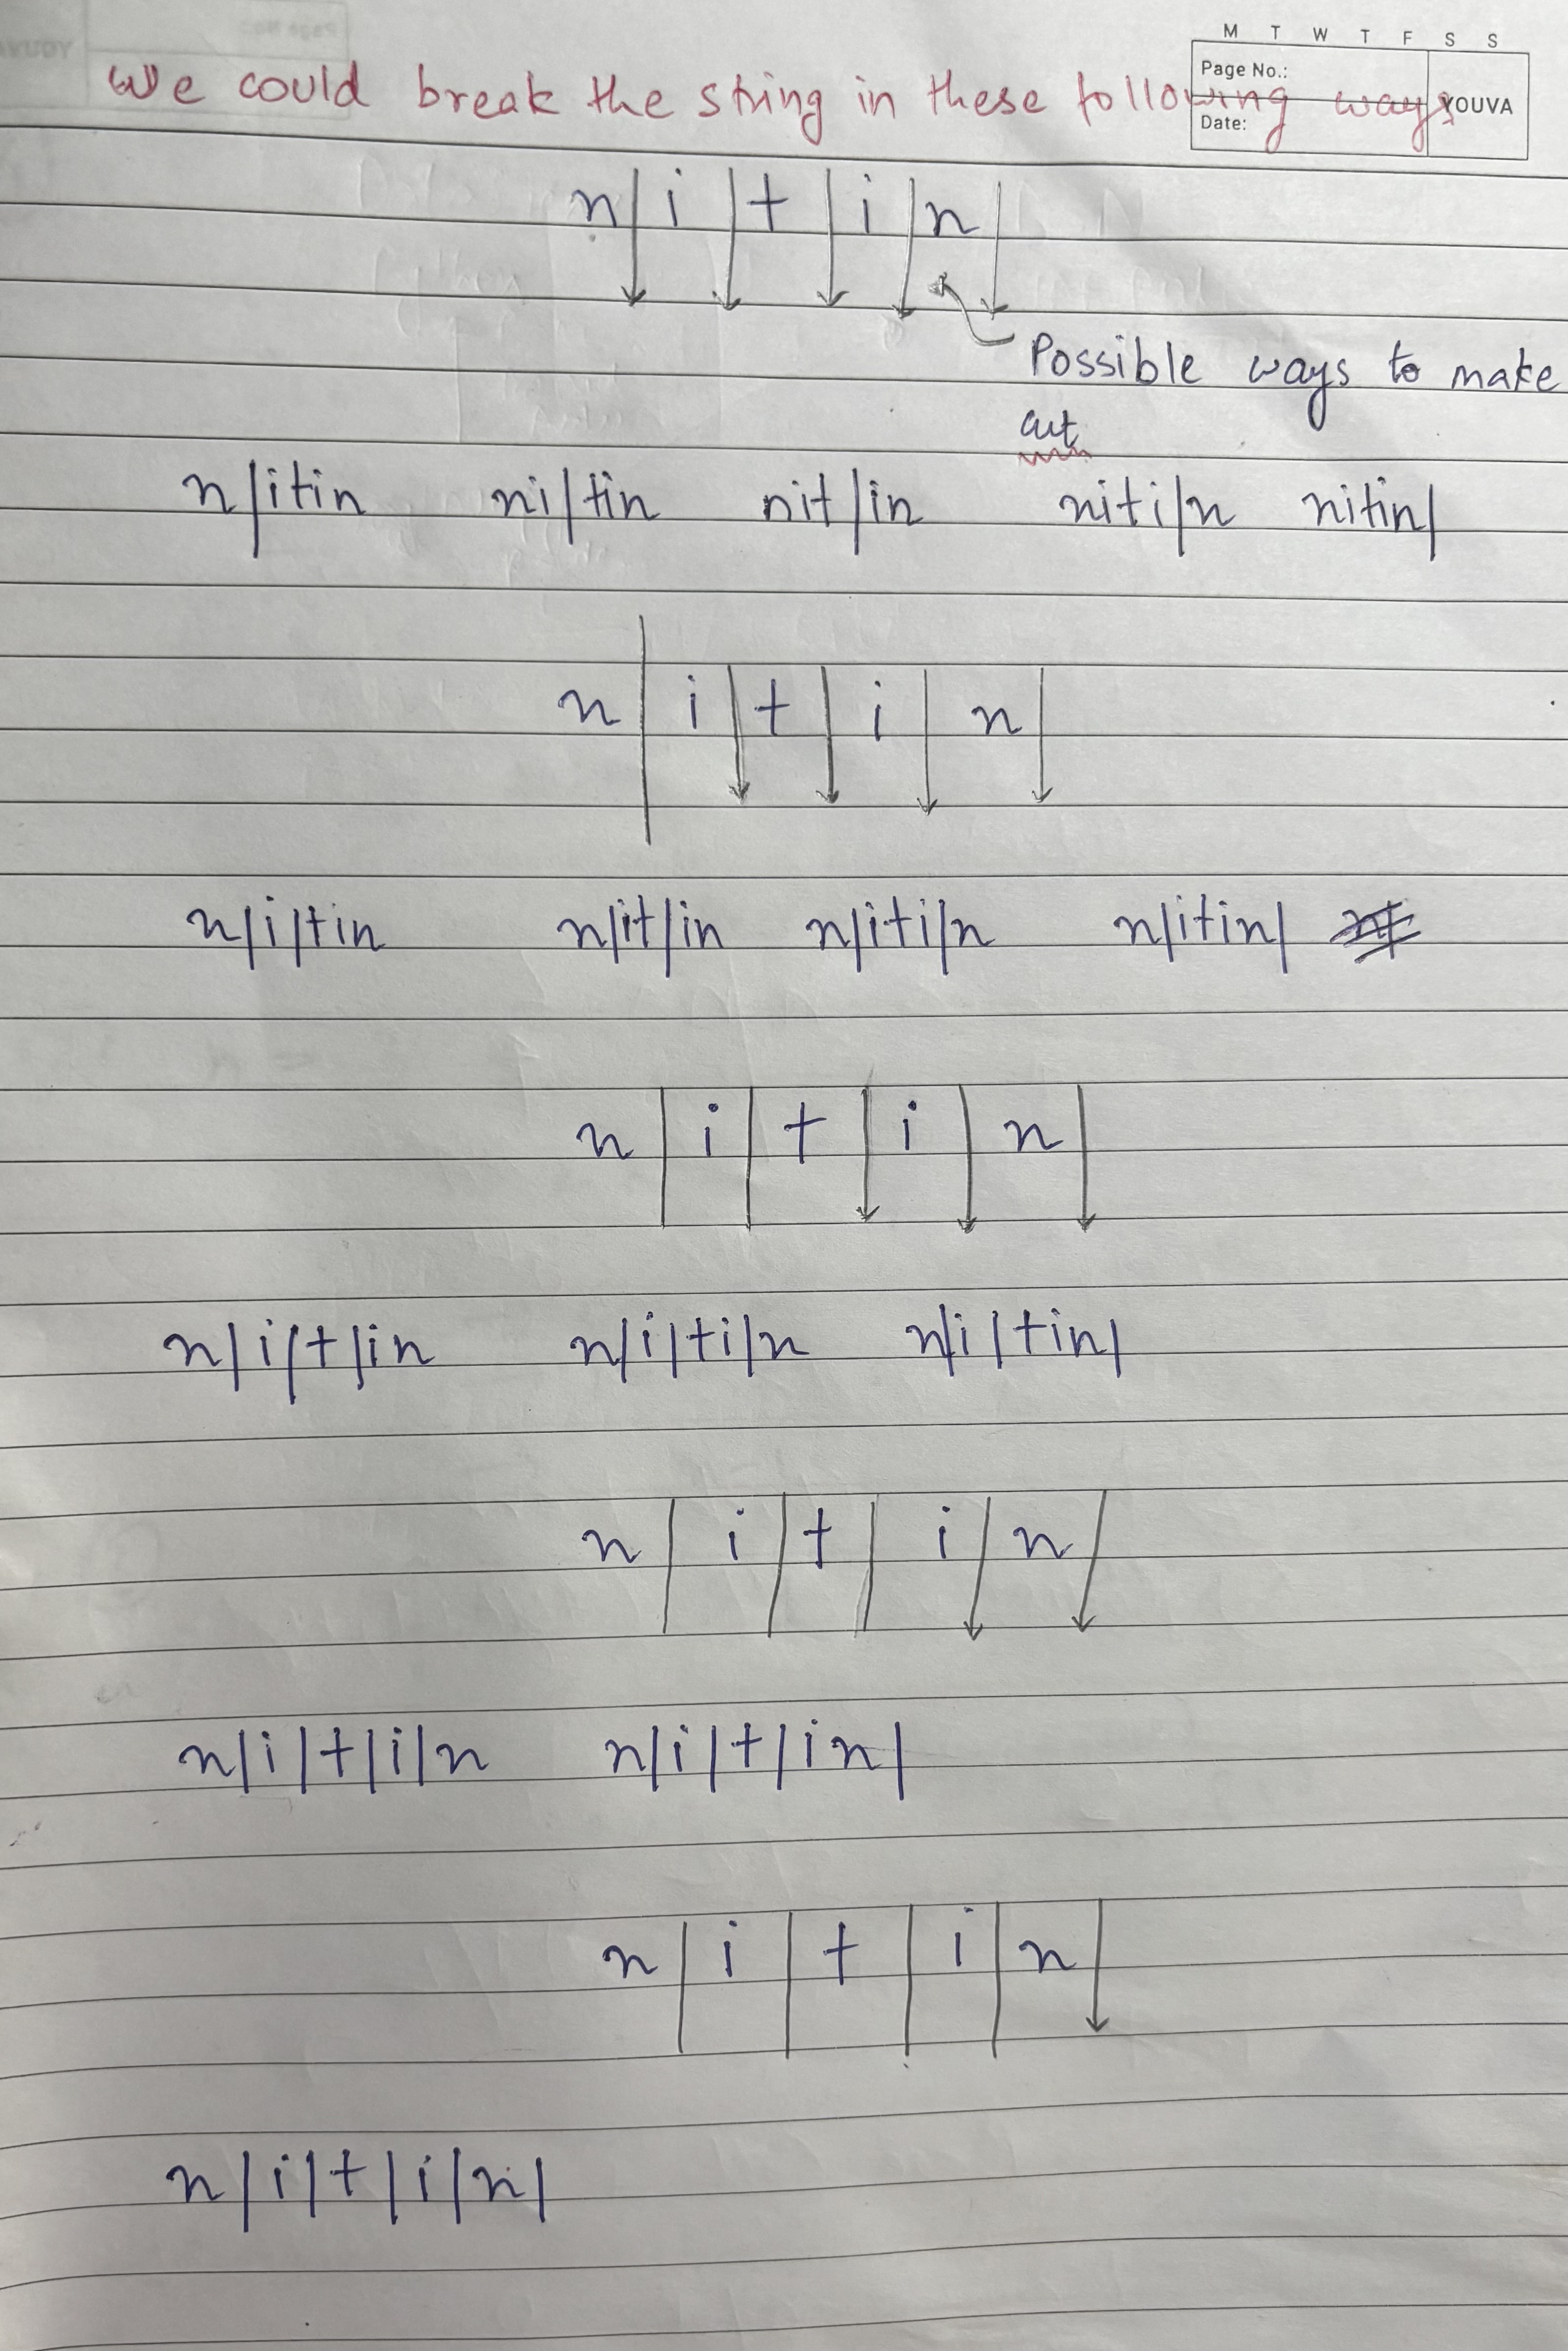 M T W T F S S
Page No.:
Date:
YOUVA
We could break the string in these following ways
n|i|t|i|n|
Possible ways to make
cut
n|itin ni|tin nit|in niti|n nitin|
n|i|t|i|n|
n|i|tin n|it|in n|iti|n n|itin|
n|i|t|i|n|
n|i|t|in n|i|ti|n n|i|tin|
n|i|t|i|n|
n|i|t|i|n n|i|t|in|
n|i|t|i|n|
n|i|t|i|n|